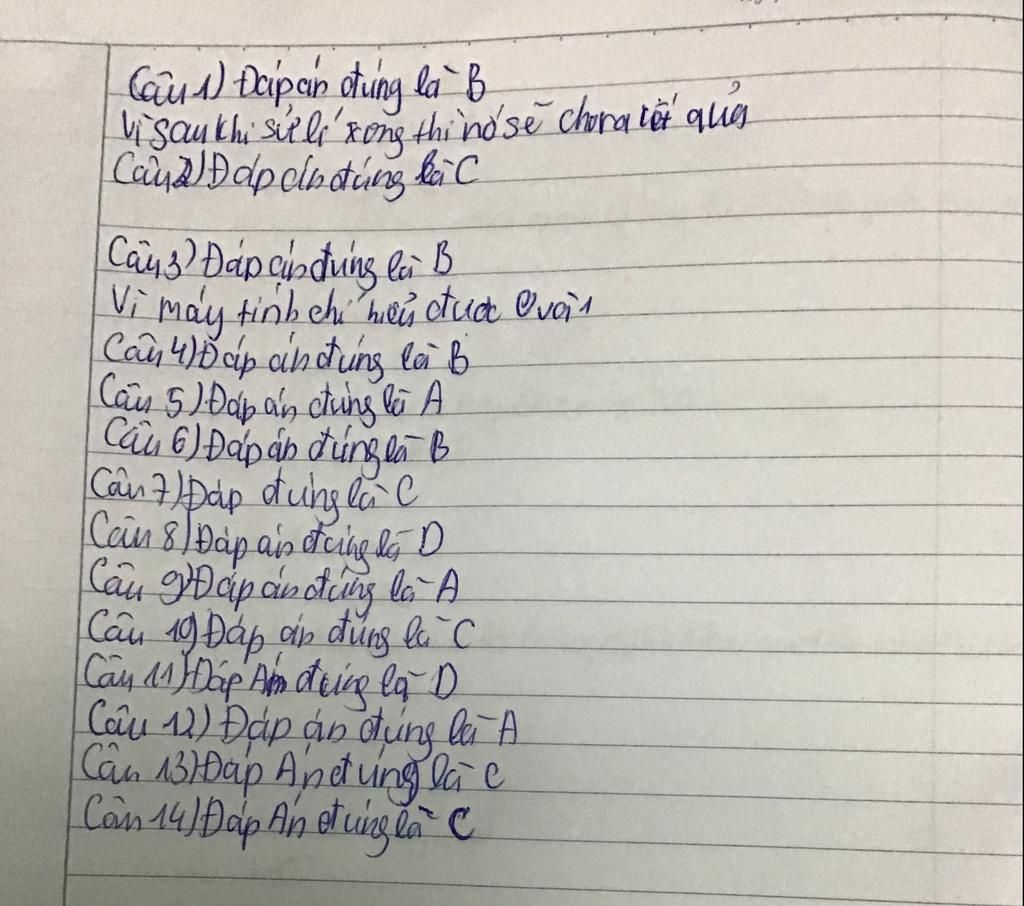 Câu 1) Đáp án đúng là B
Vì sau khi sử lí xong thì nó sẽ cho ra kết quả
Câu 2) Đáp án đúng là C
Câu 3) Đáp án đúng là B
Vì máy tính chỉ hiểu được 0 và 1
Câu 4) Đáp án đúng là B
Câu 5) Đáp án đúng là A
Câu 6) Đáp án đúng là B
Câu 7) Đáp đúng là C
Câu 8) Đáp án đúng là D
Câu 9) Đáp án đúng là A
Câu 10) Đáp án đúng là C
Câu 11) Đáp Án đúng là D
Câu 12) Đáp án đúng là A
Câu 13) Đáp Án đúng là C
Câu 14) Đáp Án đúng là C